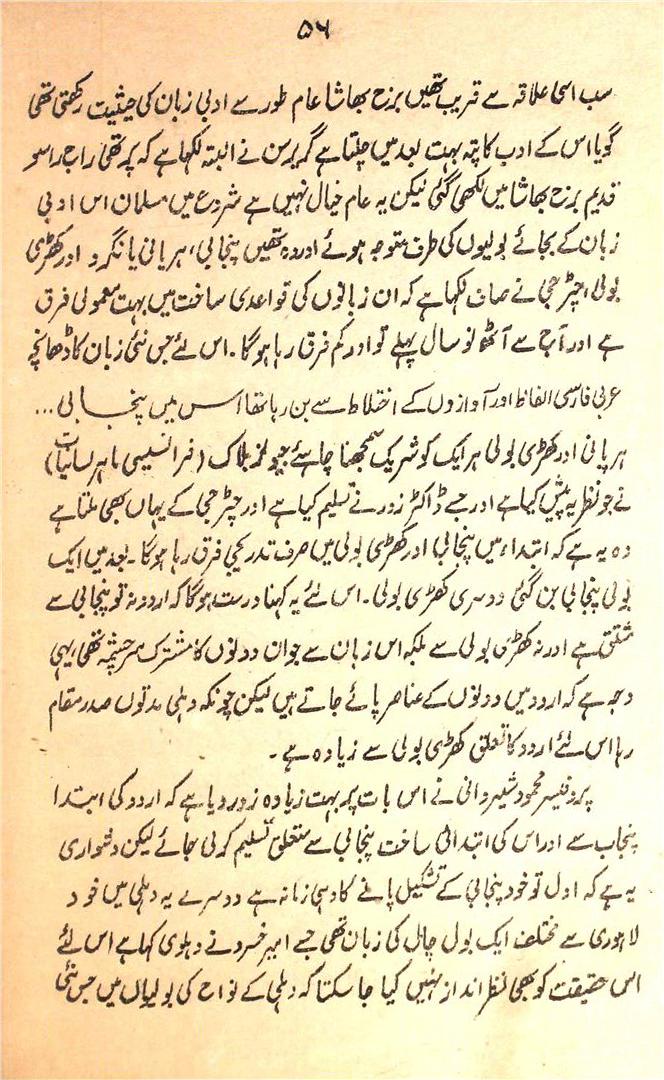 ۵۶
سب اسی علاقہ سے قریب تھیں برج بھاشا عام طور سے ادبی زبان کی حیثیت رکھتی تھی
گویا اس کے ادب کا پتہ بہت بعد میں چلتا ہے گریرسن نے البتہ لکھا ہے کہ پرتھی راج راسو
قدیم برج بھاشا میں لکھی گئی لیکن یہ عام خیال نہیں ہے شروع میں مسلمان اس ادبی
زبان کے بجائے بولیوں کی طرف متوجہ ہوئے اور وہ تھیں پنجابی، ہریانی یا نگرو اور کھڑی
بولی، چٹرجی نے صاف لکھا ہے کہ ان زبانوں کی قواعدی ساخت میں بہت معمولی فرق
ہے اور آج سے آٹھ نو سال پہلے تو اور کم فرق رہا ہوگا۔ اس لئے جس نئی زبان کا ڈھانچہ
عربی فارسی الفاظ اور آوازوں کے اختلاط سے بن رہا تھا اس میں پنجابی ...
ہریانی اور کھڑی بولی ہر ایک کو شریک سمجھنا چاہئے جیولز بلاک (فرانسیسی ماہر لسانیات)
نے جو نظریہ پیش کیا ہے اور جسے ڈاکٹر زور نے تسلیم کیا ہے اور چٹرجی کے یہاں بھی ملتا ہے
وہ یہ ہے کہ ابتداء میں پنجابی اور کھڑی بولی میں صرف تدریجی فرق رہا ہوگا۔ بعد میں ایک
بولی پنجابی بن گئی دوسری کھڑی بولی۔ اس لئے یہ کہنا درست ہوگا کہ اردو نہ تو پنجابی سے
مشتق ہے اور نہ کھڑی بولی سے بلکہ اس زبان سے جو ان دونوں کا مشترک سرچشمہ تھی، یہی
وجہ ہے کہ اردو میں دونوں کے عناصر پائے جاتے ہیں لیکن چونکہ دہلی مدتوں صدر مقام
رہا اس لئے اردو کا تعلق کھڑی بولی سے زیادہ ہے۔
پروفیسر محمود شیروانی نے اس بات پر بہت زیادہ زور دیا ہے کہ اردو کی ابتدا
پنجاب سے اور اس کی ابتدائی ساخت پنجابی سے متعلق تسلیم کرلی جائے لیکن دشواری
یہ ہے کہ اول تو خود پنجابی کے تشکیل پانے کا وہی زمانہ ہے دوسرے یہ دہلی میں خود
لاہوری سے مختلف ایک بول چال کی زبان تھی جسے امیر خسرو نے دہلوی کہا ہے اس لئے
اس حقیقت کو بھی نظر انداز نہیں کیا جا سکتا کہ دہلی کے نواح کی بولیاں میں جس نئی